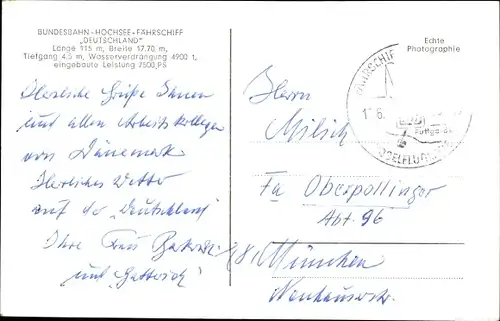 BUNDESBAHN-HOCHSEE-FÄHRSCHIFF
„DEUTSCHLAND"
Länge 115 m, Breite 17.70 m,
Tiefgang 4,5 m, Wasserverdrängung 4900 t,
eingebaute Leistung 7500 PS
Herzliche Grüße Ihnen
und allen Arbeitskollegen
von Dänemark
Herrliches Wetter
auf der „Deutschland"
Ihre Frau
und
Echte
Photographie
FÄHRSCHIFF
Puttgarden
VOGELFLUG
Herrn
Milich
Fa Oberpollinger
Abt. 96
8 München
Neuhauserstr.